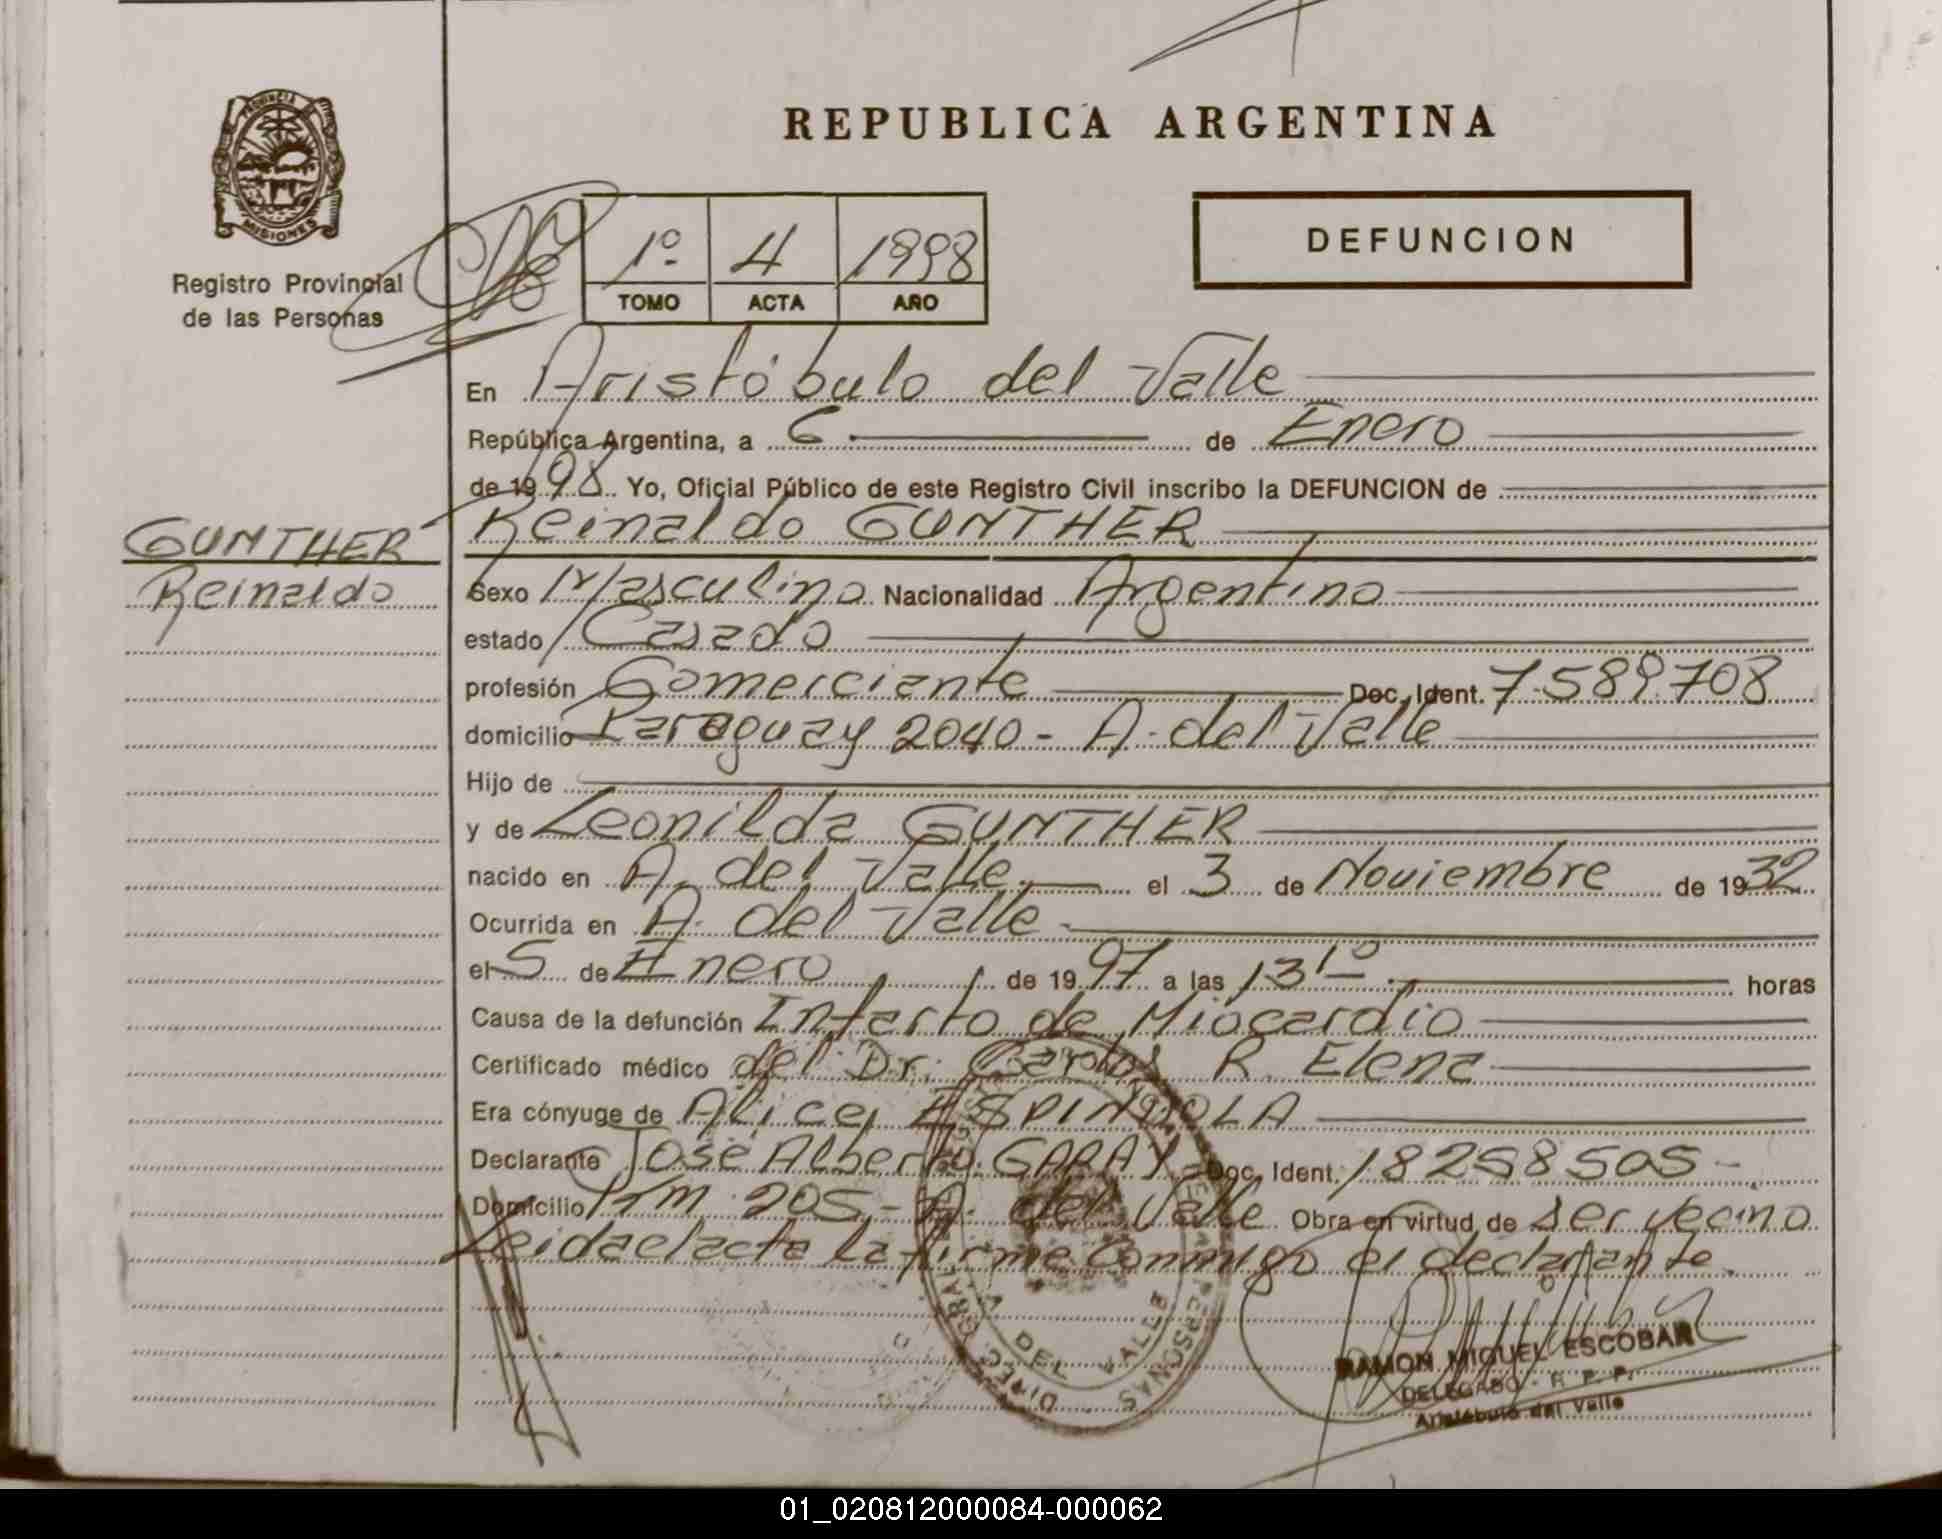 REPUBLICA ARGENTINA
PROVINCIA DE
MISIONES
Registro Provincial
de las Personas
1º 4 1998
TOMO ACTA AÑO
DEFUNCION
En Aristóbulo del Valle
República Argentina, a 6 de Enero
de 1998 Yo, Oficial Público de este Registro Civil inscribo la DEFUNCION de
GUNTHER
Reinaldo
Reinaldo GUNTHER
Sexo Masculino Nacionalidad Argentina
estado Casado
profesión Comerciante Doc. Ident. 7.589.708
domicilio Paraguay 2040 - A. del Valle
Hijo de
y de Leonilda GUNTHER
nacido en A. del Valle el 3 de Noviembre de 1932
Ocurrida en A. del Valle
el 5 de Enero de 1997 a las 13 10 horas
Causa de la defunción Infarto de Miocardio
Certificado médico del Dr. Carlos R. Elena
Era cónyuge de Alice ESPINDOLA
Declarante José Alberto GARAY Doc. Ident. 18258505-
Domicilio 205 - A. del Valle Obra en virtud de ser vecino
Leida el acta la firma conmigo el declarante
DIREC. GRAL. PERSONAS
DEL VALLE
RAMON MIGUEL ESCOBAR
DELEGADO - R. P. P.
Aristóbulo del Valle
01_020812000084-000062